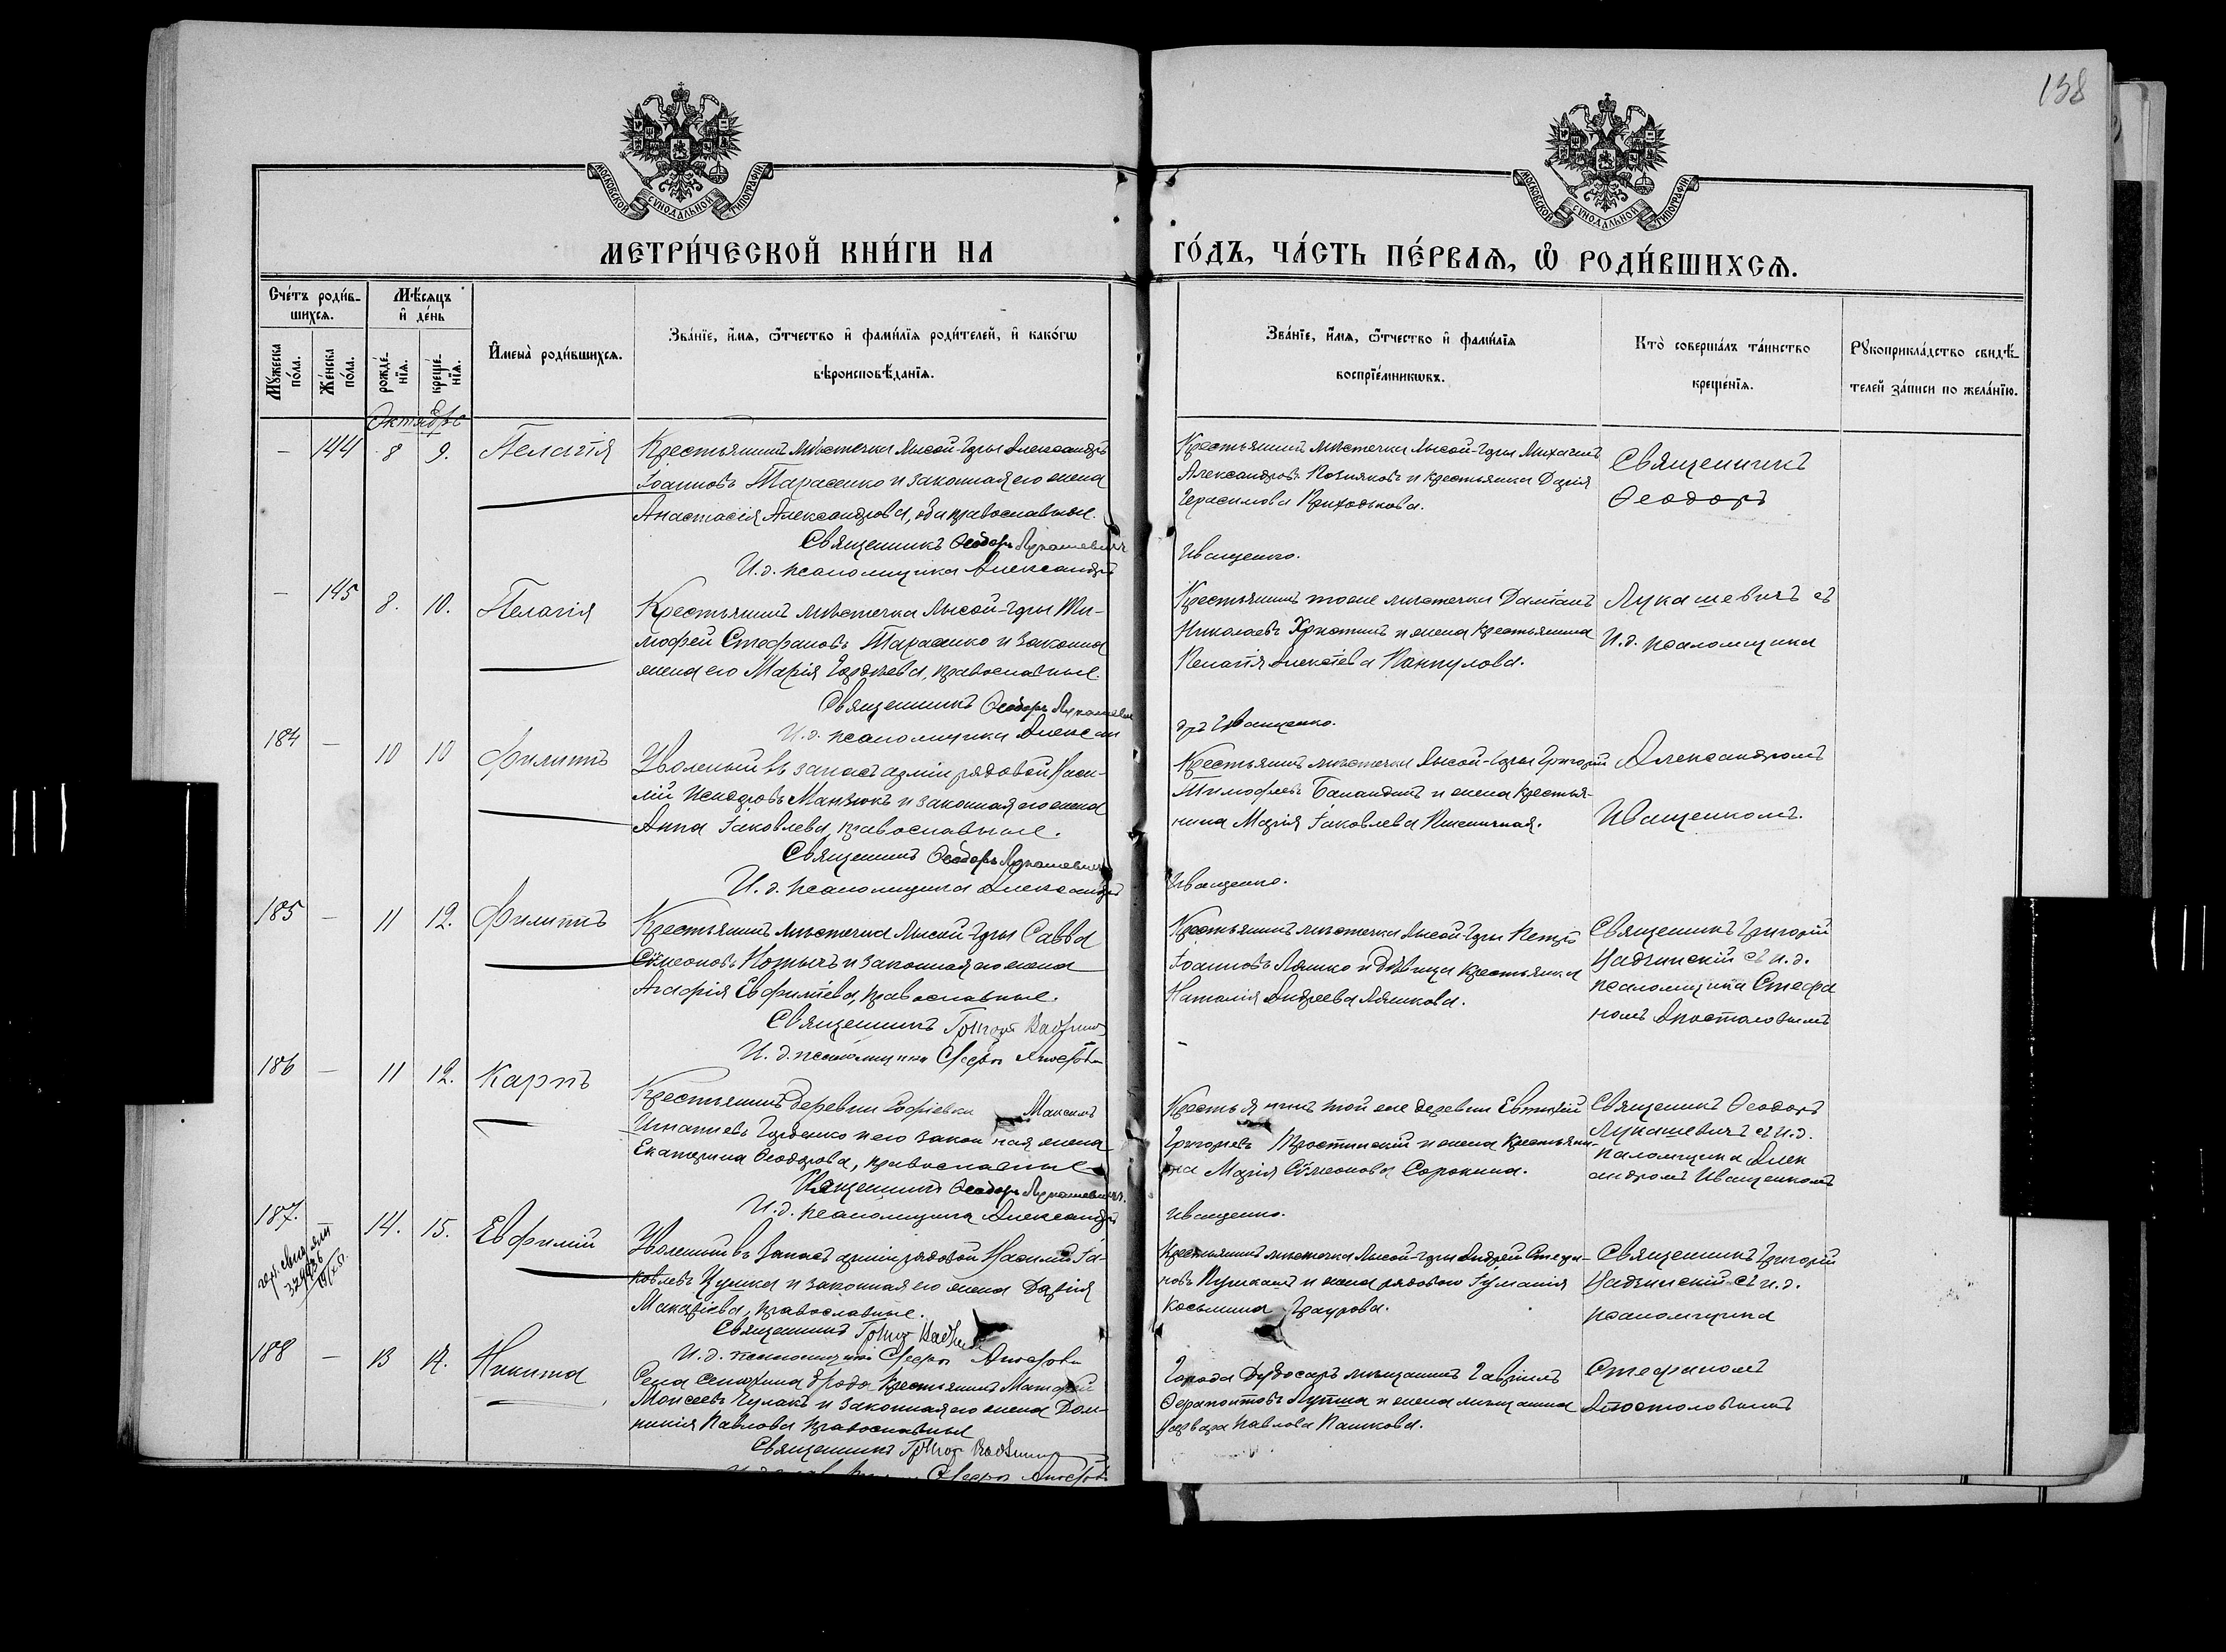 138
МОСКОВСКОЙ СУНОДАЛЬНОЙ ТИПОГРАФІИ
МОСКОВСКОЙ СУНОДАЛЬНОЙ ТИПОГРАФІИ
МЕТРИ́ЧЕСКОЙ КНИ́ГИ НА
ГО́ДЪ, ЧА́СТЬ ПЕ́РВАЯ, Ѡ РОДИ́ВШИХСЯ.
Сче́тъ роди́в-
шихся.
Мѣсяцъ
и де́нь
Му́жеска
по́ла.
Же́нска
по́ла.
рожде́-
нія.
креще́-
нія.
Имена̀ роди́вшихся.
Зва́ніе, и́мя, ѻ́тчество и фами́лія роди́телей, и како́гѡ
вѣроисповѣ́данія.
Зва́ніе, и́мя, ѻ́тчество и фами́лія
воспріе́мниковъ.
Кто̀ соверша́лъ та́инство
креще́нія.
Рукоприкла́дство свидѣ́-
телей за́писи по жела́нію.
Октябрь
– 144 8 9. Пелагія
Крестьянинъ мѣстечка Лысой-Горы Александръ
Іоанновъ Тарасенко и законная его жена
Анастасія Александрова, оба православные.
Священникъ Ѳеодоръ Лукашевичъ
И. д. псаломщика Александръ
Крестьянинъ мѣстечка Лысой-Горы Михаилъ
Александровъ Позняковъ и крестьянка Дарія
Герасимова Приходькова.
Иващенко.
Священникъ
Ѳеодоръ
– 145 8. 10. Пелагія
Крестьянинъ мѣстечка Лысой-Горы Ти-
мофей Стефановъ Тарасенко и законная
жена его Марія Гордѣева, православные.
Священникъ Ѳеодоръ Лукашевичъ
И. д. псаломщика Алексан
Крестьянинъ того же мѣстечка Даміанъ
Николаевъ и жена крестьянина
Пелагія Алексѣева
дръ Иващенко.
Лукашевичъ съ
И. д. псаломщика
184 – 10 10 Филиппъ
Уволеный въ запасъ арміи рядовой Васи-
лій Манзюкъ и законная его жена
Анна Іаковлева, православные.
Священникъ Ѳеодоръ Лукашевичъ
И. д. псаломщика Александръ
Крестьянинъ мѣстечка Лысой-Горы Григорій
Тимофеевъ Баландинъ и жена крестья-
нина Марія Іаковлева Пшеничная.
Иващенко.
Александромъ
Иващенкомъ.
185 – 11 12. Филиппъ
Крестьянинъ мѣстечка Лысой-Горы Савва
Симеоновъ и законная его жена
Агафія Евфиміева, православные.
Священникъ Григорій
И. д. псаломщика Стефанъ
Крестьянинъ мѣстечка Лысой-Горы Петръ
Іоанновъ Ляшко и дѣвица крестьянка
Наталія Андреева Ляшкова.
–
Священникъ Григорій
съ и. д.
псаломщика Стефа
номъ Апостоловымъ
186 – 11 12. Карпъ
Крестьянинъ деревни Софіевки Максимъ
Игнатіевъ Гордѣенко и его законная жена
Екатерина Ѳеодорова, православные
Священникъ Ѳеодоръ Лукашевичъ.
И. д. псаломщика Александръ
Крестьянинъ той же деревни Евтихій
Григорьевъ и жена крестьяни-
на Марія Симеонова Сорокина.
Иващенко.
Священикъ Ѳеодоръ
Лукашевичъ съ и. д.
псаломщика Алек
андромъ Иващенкомъ
187. – 14. 15. Евфимій
Уволеный въ запасъ арміи рядовой Василій Іа-
ковлевъ Цушка и законная его жена Дарія
Макаріева, православные.
Священникъ Григорій
И. д. псаломщика Стефанъ
Крестьянинъ мѣстечка Лысой-Горы Андрей
Пушкашъ и жена рядового Іуліанія
Косьмина Граурова.
Священникъ Григорій
съ и. д.
псаломщика
188 – 13 14. Никита
Села Сенюхина Брода крестьянинъ Матфей
Моисеевъ Чулакъ и законная его жена Дом-
никія Павлова православные
Священникъ Григорій
Города Дубосаръ мѣщанинъ Гавріилъ
Ѳерапонтовъ Лупша и жена мѣщанина
Варвара Павлова Пашкова.
Стефаномъ
Апостоловымъ